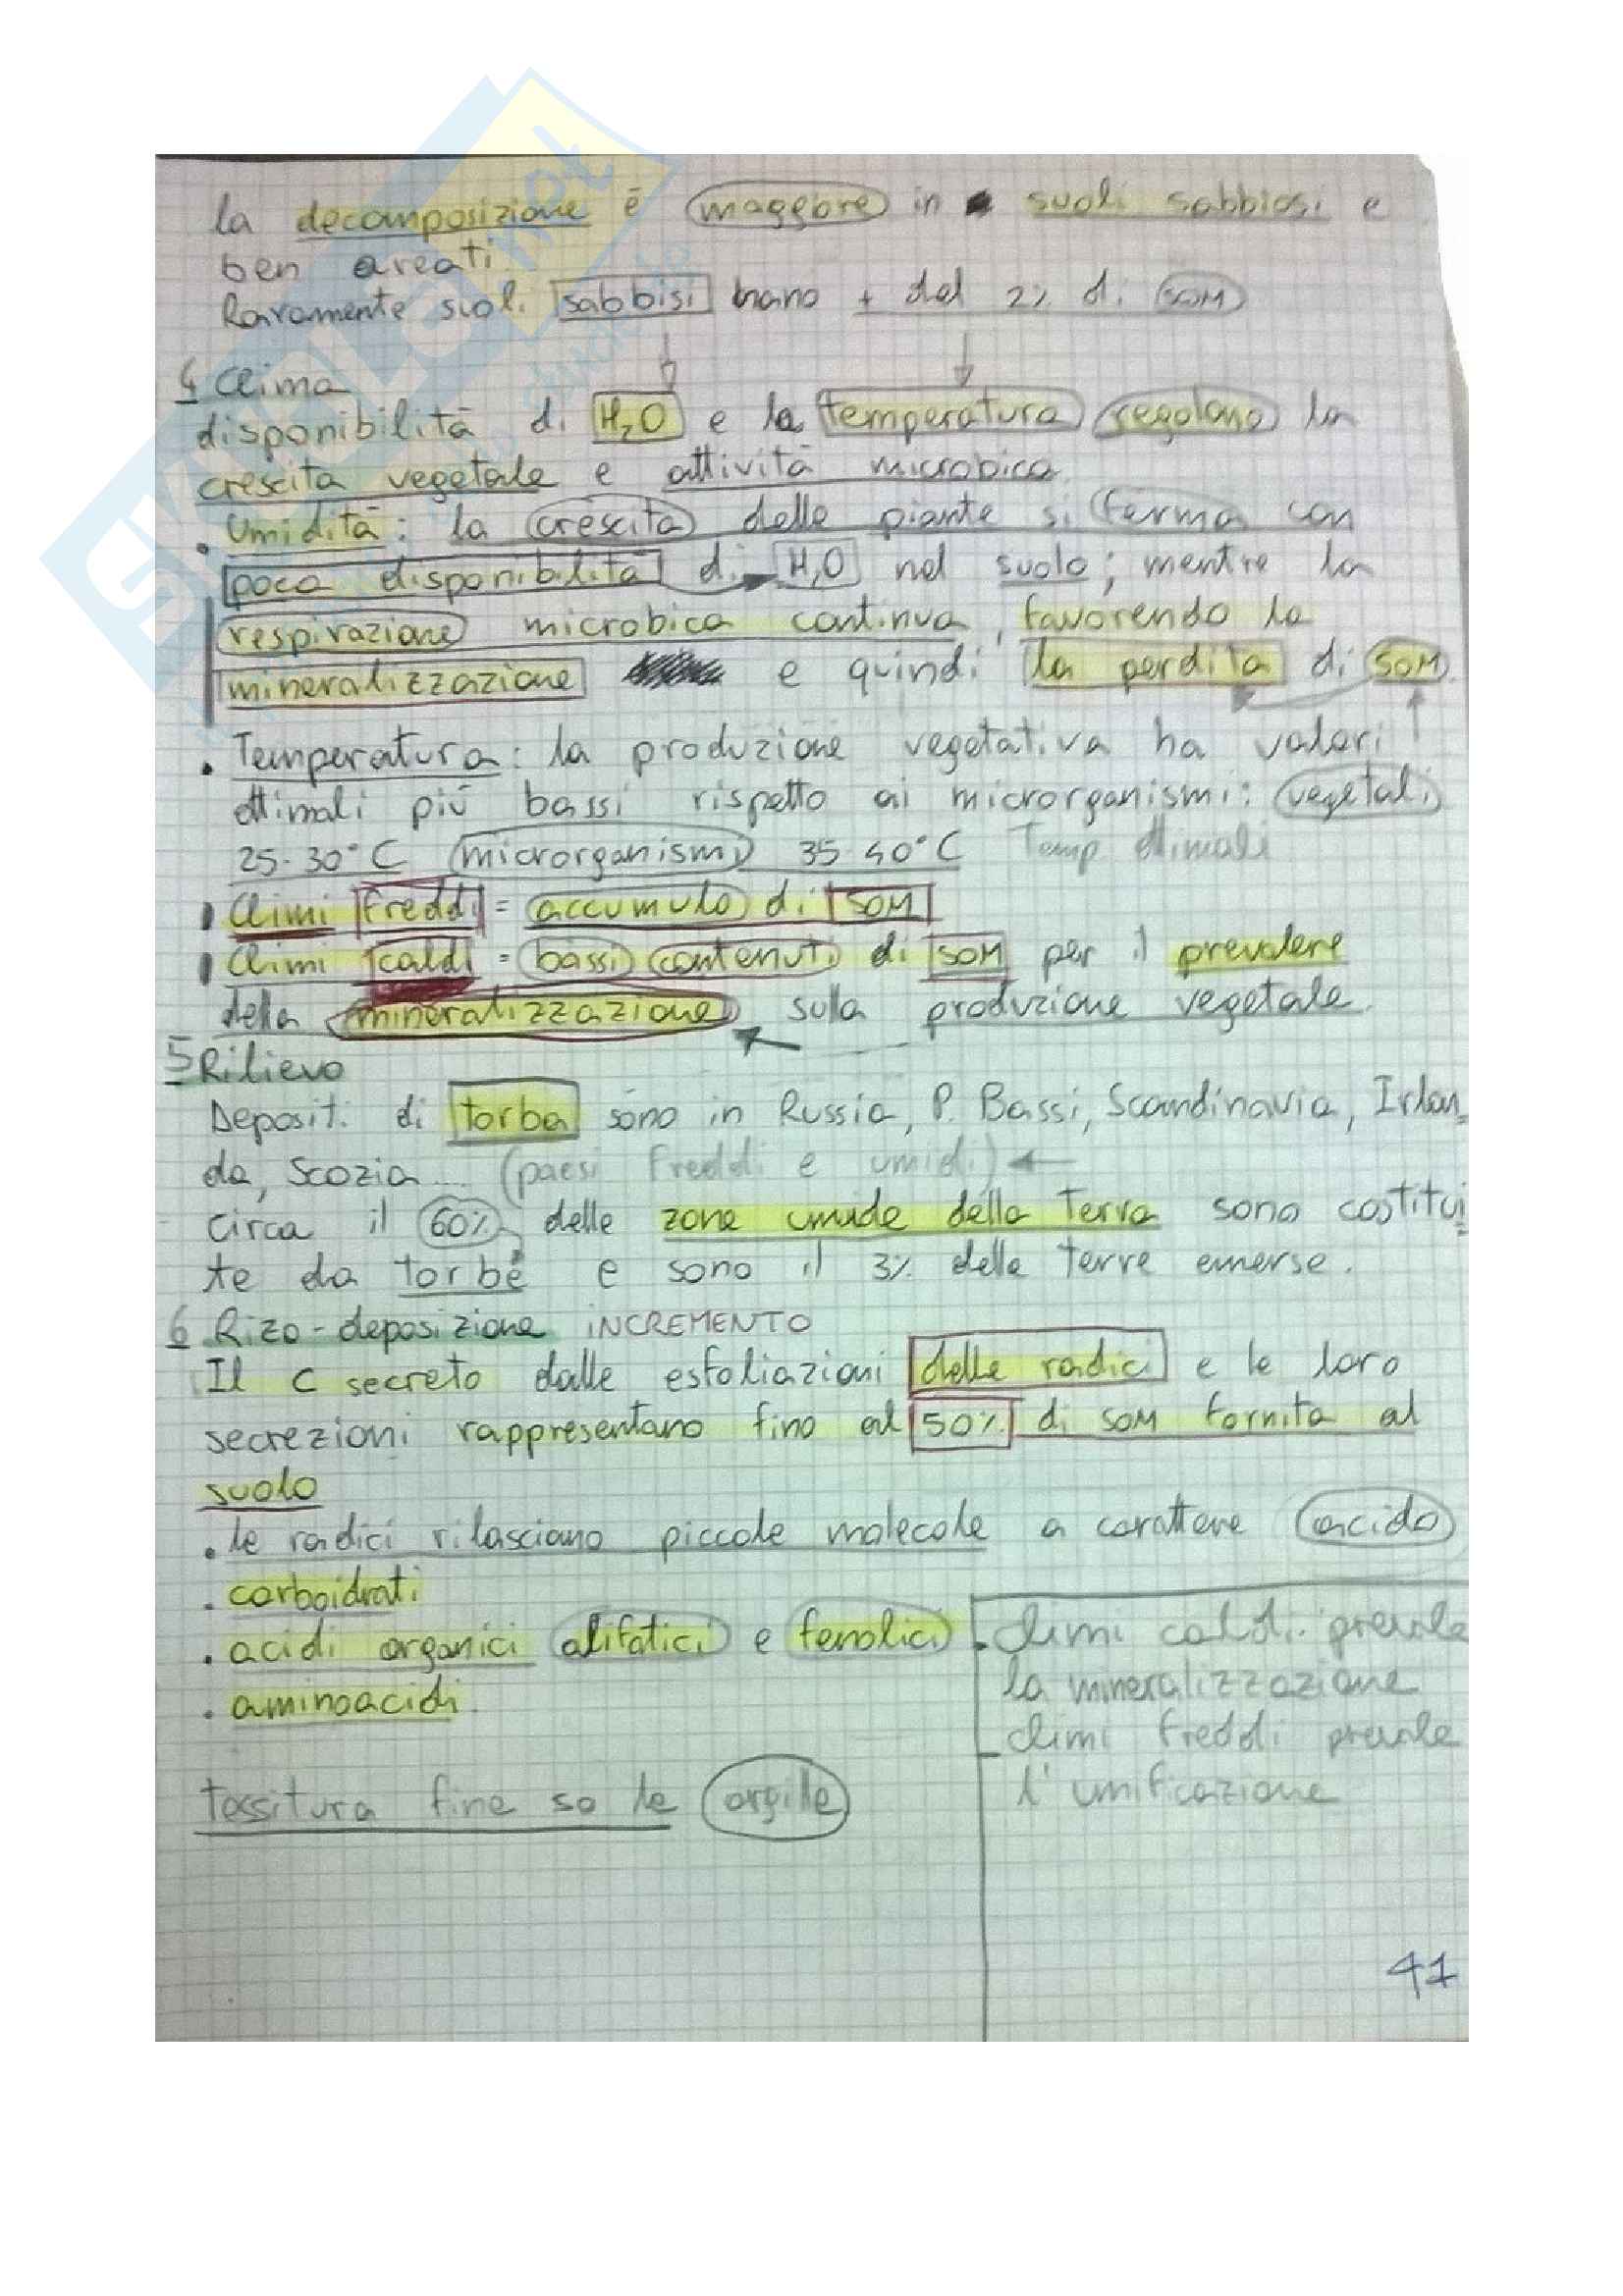 la decomposizione è maggiore in suoli sabbiosi e
ben areati
Raramente suoli sabbisi hanno + del 2% di SOM
4 Clima
disponibilità di H₂O e la temperatura regolano la
crescita vegetale e attività microbica
• Umidità: la crescita delle piante si ferma con
poca disponibilità di H₂O nel suolo; mentre la
respirazione microbica continua, favorendo la
mineralizzazione e quindi la perdita di SOM.
• Temperatura: la produzione vegetativa ha valori
ottimali più bassi rispetto ai microrganismi: vegetali
25-30°C microrganismi 35-40°C Temp ottimali
Climi freddi = accumulo di SOM
Climi caldi = bassi contenuti di SOM per il prevalere
della mineralizzazione sulla produzione vegetale.
5 Rilievo
Depositi di torba sono in Russia, P. Bassi, Scandinavia, Irlan-
da, Scozia.... (paesi freddi e umidi) ←
Circa il 60% delle zone umide della Terra sono costitui
te da torbe e sono il 3% delle terre emerse.
6 Rizo-deposizione INCREMENTO
Il C secreto dalle esfoliazioni delle radici e le loro
secrezioni rappresentano fino al 50% di SOM fornita al
suolo
• le radici rilasciano piccole molecole a carattere acido
• carboidrati
• acidi organici alifatici e fenolici
• aminoacidi.
• climi caldi: prevale
la mineralizzazione
climi freddi prevale
l'umificazione
Tessitura fine so le argille
41